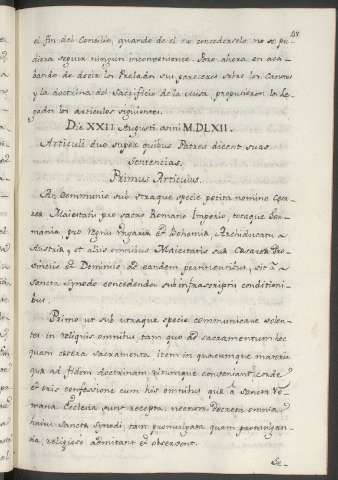 48
el fin del Concilio, quando de el no concederselo no se pu-
diera seguir ningun inconveniente. Pero ahora en aca-
bando de decir los Prelados sus pareceres sobre los Canones
y la doctrina del Sacrificio de la misa, propusieron los Le-
gados los articulos siguientes.
Die XXII Augusti anni M.DLXII.
Articuli duo super quibus Patres dicent suas
sententias.
Primus Articulus.
An Communio sub utraque specie petita nomine Cęsa-
reæ Maiestatis pro sacro Romano Imperio, totaque Ger-
mania, pro regnis Ungariæ et Bohemiæ, Archiducatu
Austriæ, et aliis omnibus Maiestatis suæ Cæsareæ Pro-
vinciis et Dominiis ad eandem pertinentibus, sit a
Sancta Synodo concedenda sub infrascriptis conditioni-
bus.
Primo ut sub utraque specie communicare volen-
tes in reliquis omnibus tam quo ad sacramentum hoc
quam cætera sacramenta item in quacumque materia
quæ ad fidem doctrinam ritumque conveniant corde,
et oris confessione cum his omnibus quæ a Sancta Ro-
mana Ecclesia sunt recepta, necnon Decreta omnia
huius Sanctæ Synodi, tam promulgata quam promulgan-
da, religiose admittant et observent.
Se-